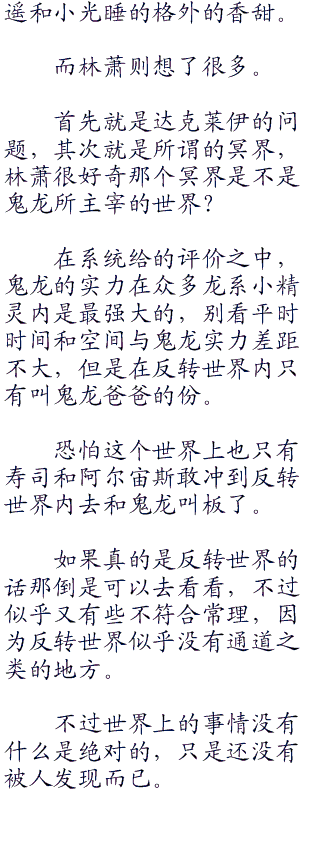 遥和小光睡的格外的香甜。
而林萧则想了很多。
首先就是达克莱伊的问
题，其次就是所谓的冥界，
林萧很好奇那个冥界是不是
鬼龙所主宰的世界？
在系统给的评价之中，
鬼龙的实力在众多龙系小精
灵内是最强大的，别看平时
时间和空间与鬼龙实力差距
不大，但是在反转世界内只
有叫鬼龙爸爸的份。
恐怕这个世界上也只有
寿司和阿尔宙斯敢冲到反转
世界内去和鬼龙叫板了。
如果真的是反转世界的
话那倒是可以去看看，不过
似乎又有些不符合常理，因
为反转世界似乎没有通道之
类的地方。
不过世界上的事情没有
什么是绝对的，只是还没有
被人发现而已。